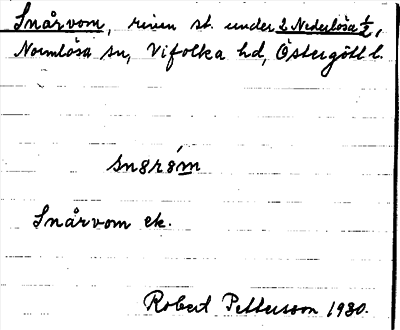 Snårvom, riven st. under 2 Nederlösa 1/2,
Normlösa sn, Vifolka hd, Östergötl l.
Snårvom ek.
Robert Pettersson 1930.